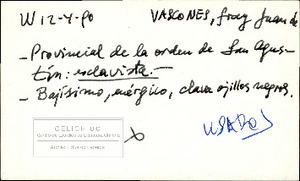 W 12-4-90 VASCONES, fray Juan de
- Provincial de la orden de San Agus-
tín: esclavista.-
- Bajísimo, enérgico, clava ojillos negros.
USADOS
CELICH UC